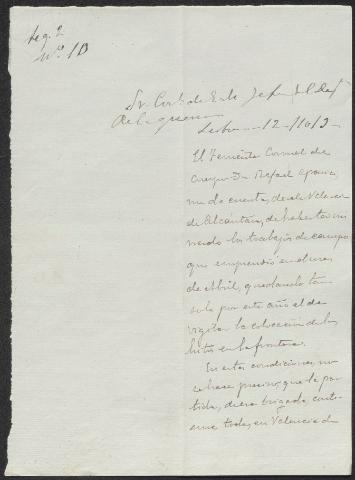 Leg. 2
Nº 10
Sr.
de la guerra
Lisboa - 12 - /10/3 -
El Teniente Coronel de
Cuerpo Dn. Rafael Aparici,
me da cuenta, desde Valencia
de Alcántara, de haber ter mi
nado los trabajos de campo
que emprendió en el mes
de Abril, quedando tan
solo por este año el de
vigilar la colocación de los
hitos en la frontera.
En estas condiciones, no
se hace preciso, que la par
tida, de esa brigada, conti
nue toda, en Valencia de